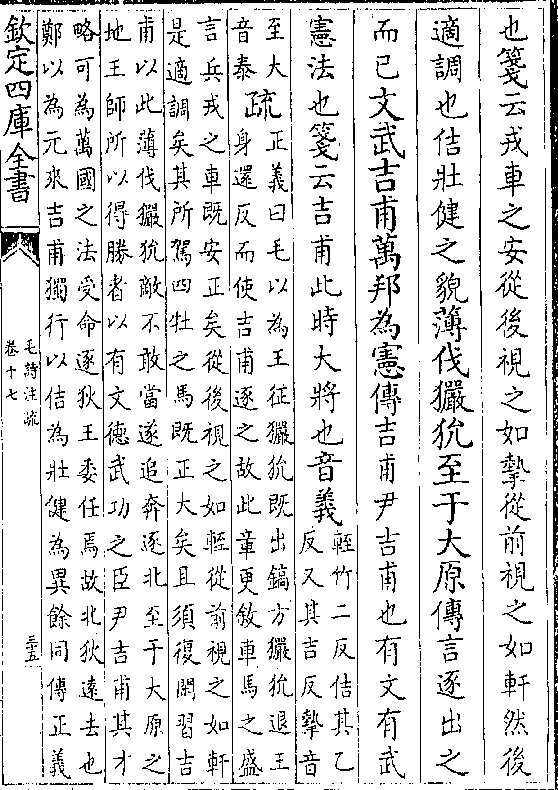 也箋云戎車之安從後視之如摯從前視之如軒然後
適調也佶壯健之貌薄伐玁狁至于大原傳言逐出之
而已文武吉甫萬邦為憲傳吉甫尹吉甫也有文有武
憲法也箋云吉甫此時大將也音義輊竹二反佶其乙
反又其吉反摯音
至大
音泰
疏正義曰毛以為王征玁狁既出鎬方玁狁退王
身還反而使吉甫逐之故此章更敘車馬之盛
言兵戎之車既安正矣從後視之如輊從前視之如軒
是適調矣其所駕四牡之馬既正大矣且須復閑習吉
甫以此薄伐玁狁敵不敢當遂追奔逐北至于大原之
地王師所以得勝者以有文德武功之臣尹吉甫其才
略可為萬國之法受命逐狄王委任焉故北狄遠去也
鄭以為元來吉甫獨行以佶為壯健為異餘同傳正義
欽定四庫全書
毛詩注疏
卷十七
三五